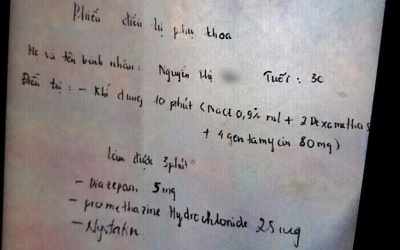 Phiếu điều trị phụ khoa
Họ và tên bệnh nhân: Nguyễn Thị Tuổi: 30
Điều trị: - Khí dung 10 phút (NaCl 0,9% + 2 Dexametha
+ 4 gentamycin 80mg)
Làm được 3 phút
- Diazepam 5mg
- promethazine Hydrochloride 25 mg
- Nystatin